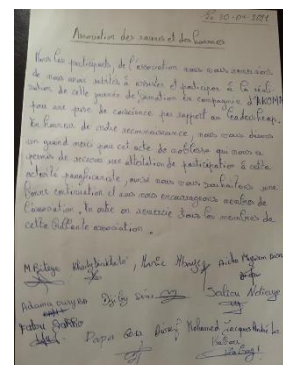 Le 30-04-2021
Association des cœurs et des hommes
Nous les participants, de l'association nous vous remercions
de nous avoir invités à assister et participer à la réali-
sation de cette journée de formation en compagnie d'AKOMA
pour une prise de conscience par rapport au leadership.
En honneur de votre reconnaissance, nous vous disons
un grand merci pour cet acte de noblesse qui nous a
permis de recevoir une attestation de participation à cette
activité, aussi nous vous souhaitons une
bonne continuation et nous vous encourageons membres de
l'association. En outre on remercie tous les membres de
cette brillante association.
M. Khady Diakhaté, Marie Aicha
Adama Saliou Ndiaye
Papa Mohamed Jacques André